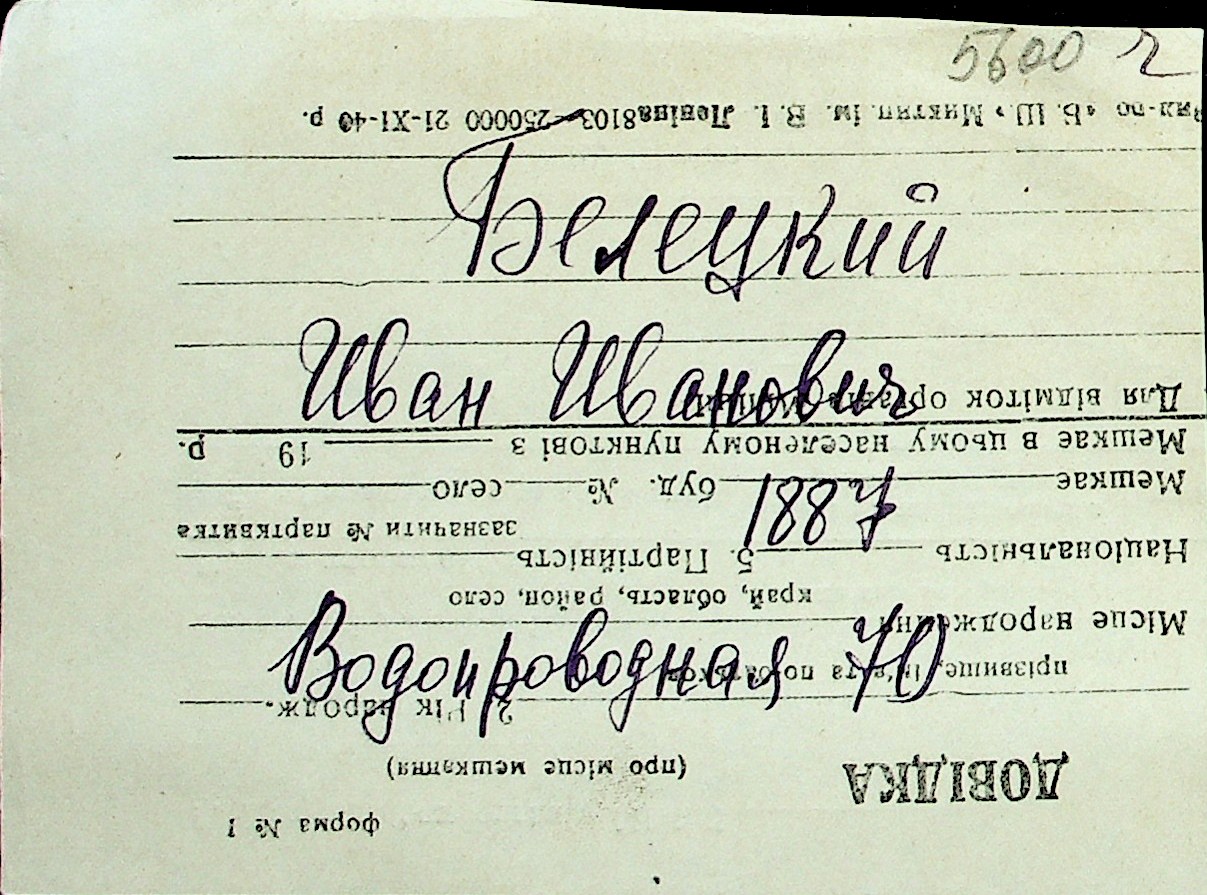 5600 r
Белецкий
Иван Иванович
1887
Водопроводная 70
форма № 1
ДОВІДКА
(про місце мешкання)
2. Рік народж.
прізвище, ім'я та по батькові
Місце народження
край, область, район, село
Національність 5. Партійність
зазначити № партквитка
Мешкає буд. № село
Мешкає в цьому населеному пунктові з 19 р.
Для відміток органів міліції
"Б. Ш." Миктип. ім. В. І. Леніна 8103—250000 21-XI-40 р.